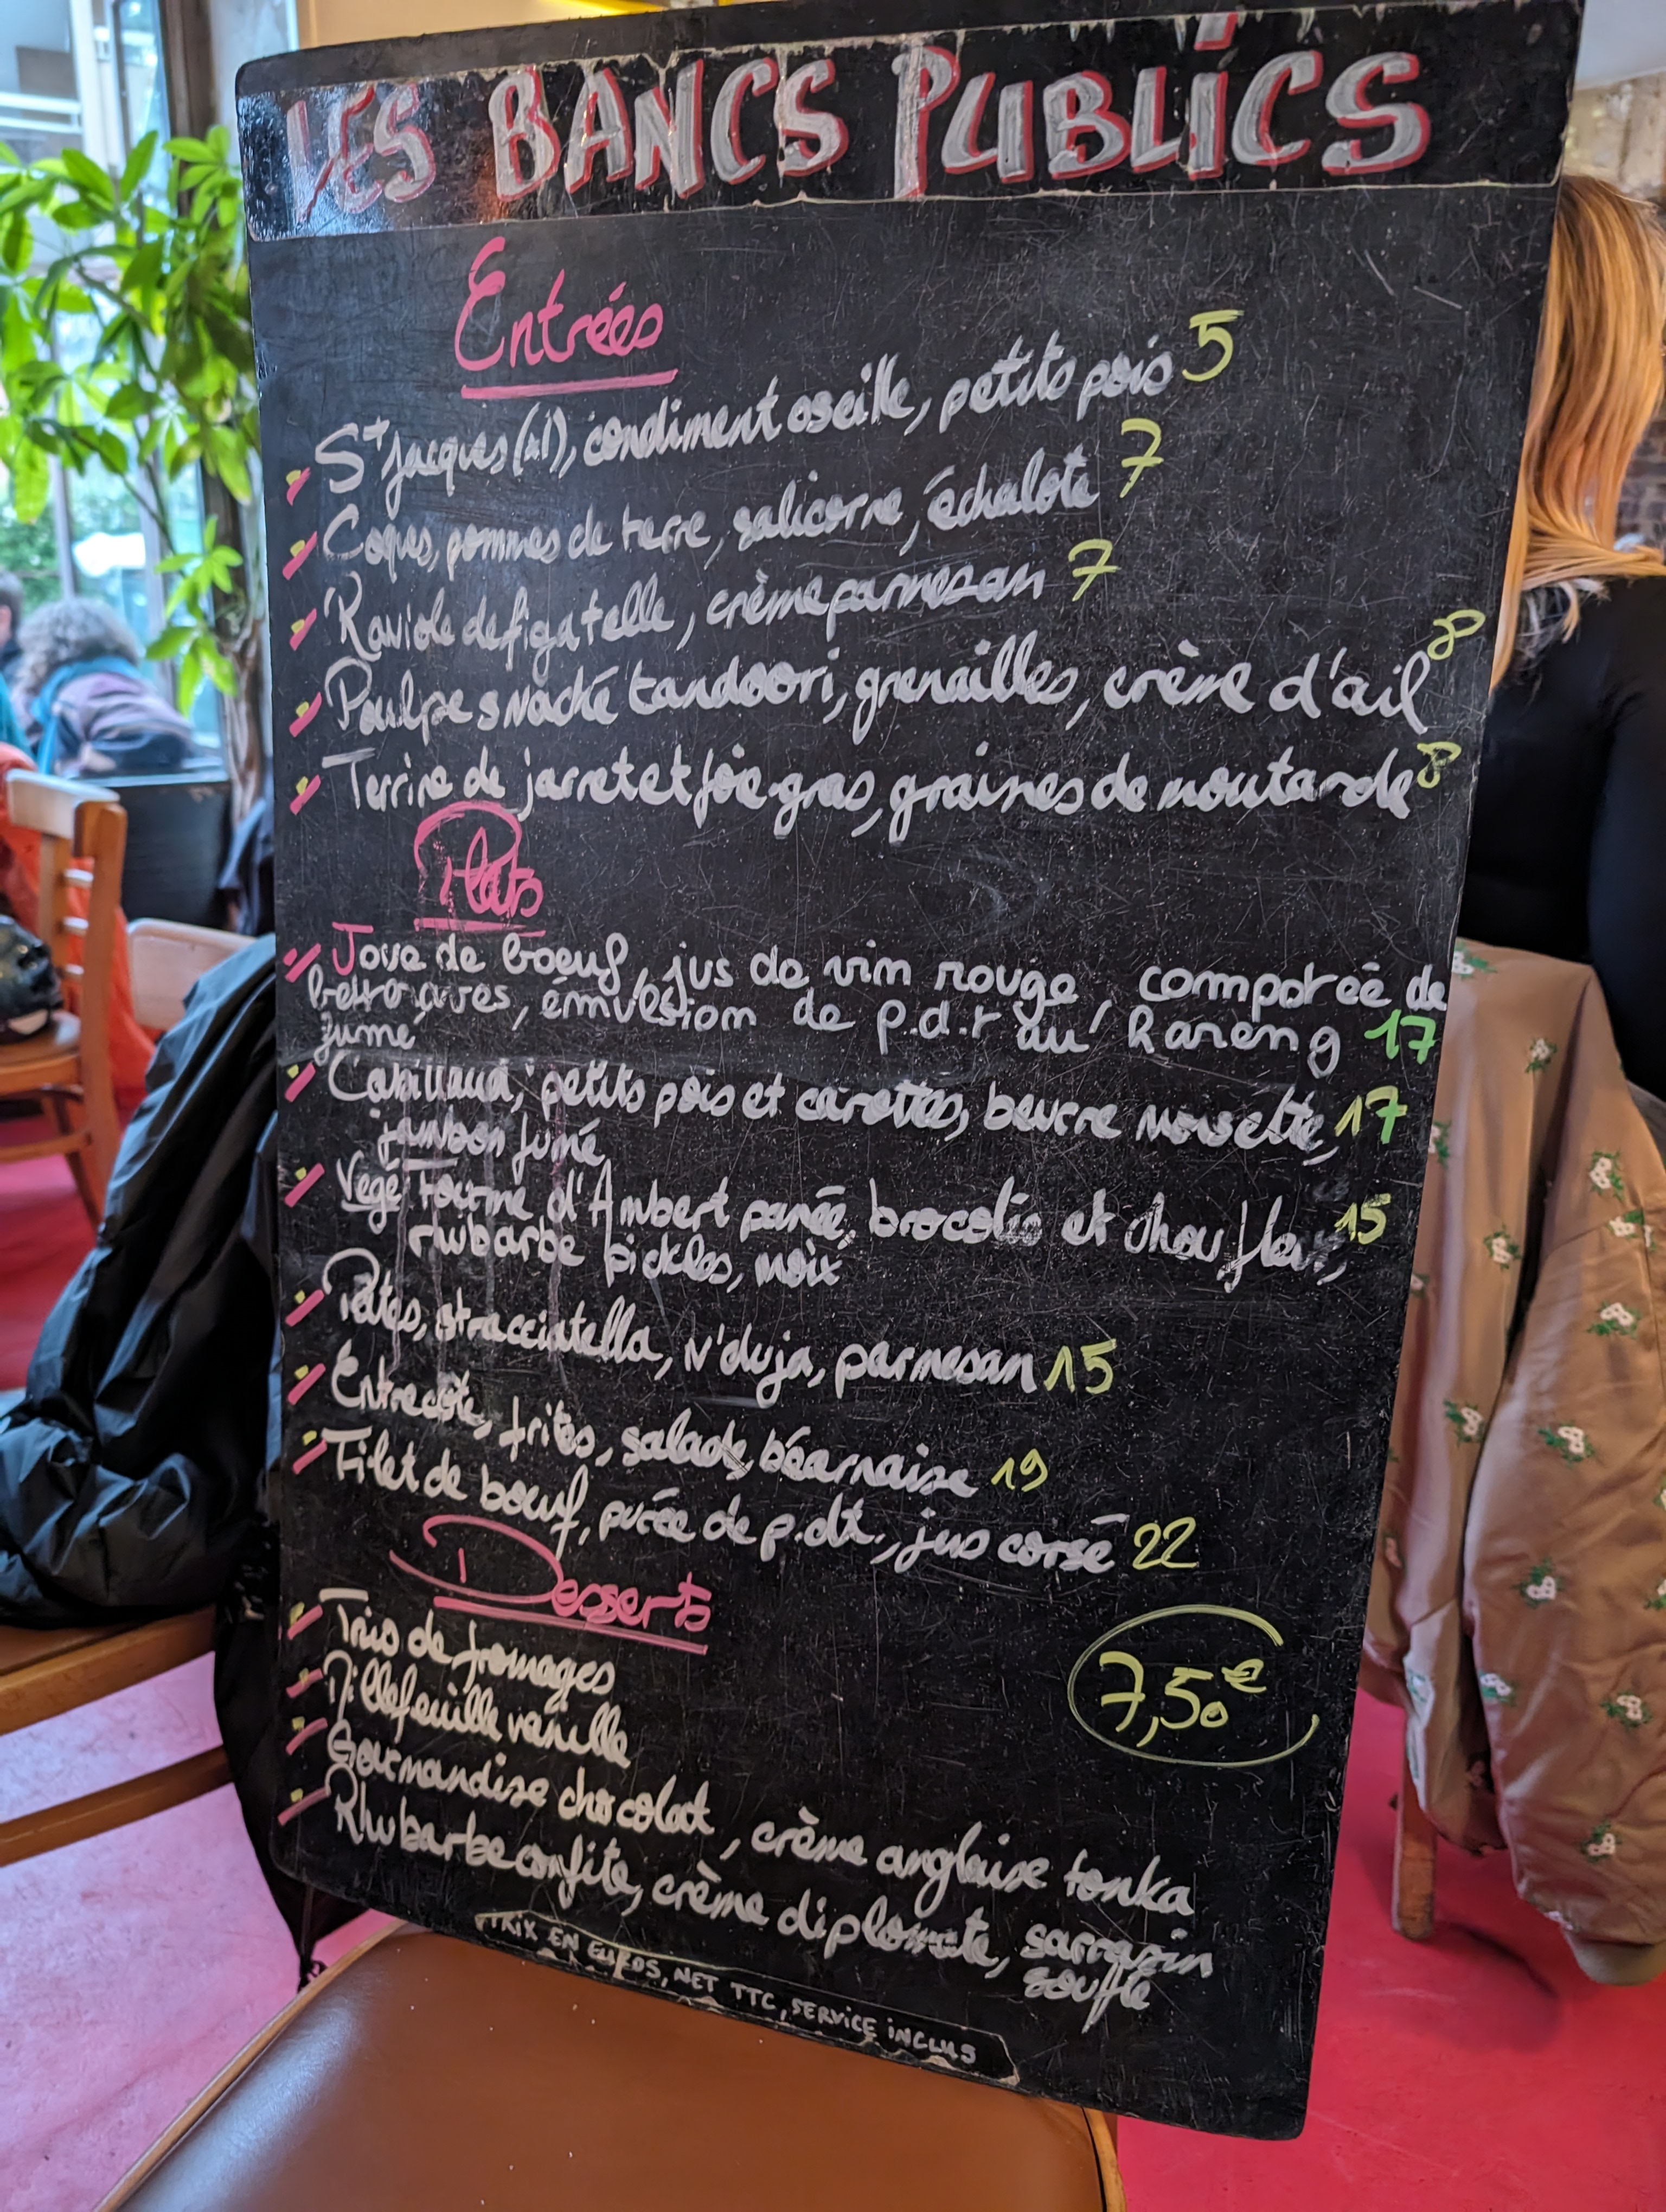 LES BANCS PUBLICS
Entrées
St Jacques (x1), condiment oseille, petits pois 5
Coques, pommes de terre, salicorne, échalote 7
Raviole de figatelle, crème parmesan 7
Poulpe snacké tandoori, grenailles, crème d'ail 8
Terrine de jarret et foie gras, graines de moutarde 8
Plats
Joue de boeuf, jus de vin rouge, compotée de
betteraves, émulsion de p.d.t au Hareng 17
fumé
Cabillaud, petits pois et carottes, beurre noisette, 17
jambon fumé
Végé Fourme d'Ambert panée, brocolis et chou fleur, 15
rhubarbe pickles, noix
Pâtes, stracciatella, N'duja, parmesan 15
Entrecôte, frites, salade, béarnaise 19
Filet de boeuf, purée de p.d.t., jus corsé 22
Desserts
Trio de fromages
Millefeuille vanille
7,50€
Gourmandise chocolat, crème anglaise tonka
Rhubarbe confite, crème diplomate, sarrasin
soufflé
PRIX EN EUROS, NET TTC, SERVICE INCLUS